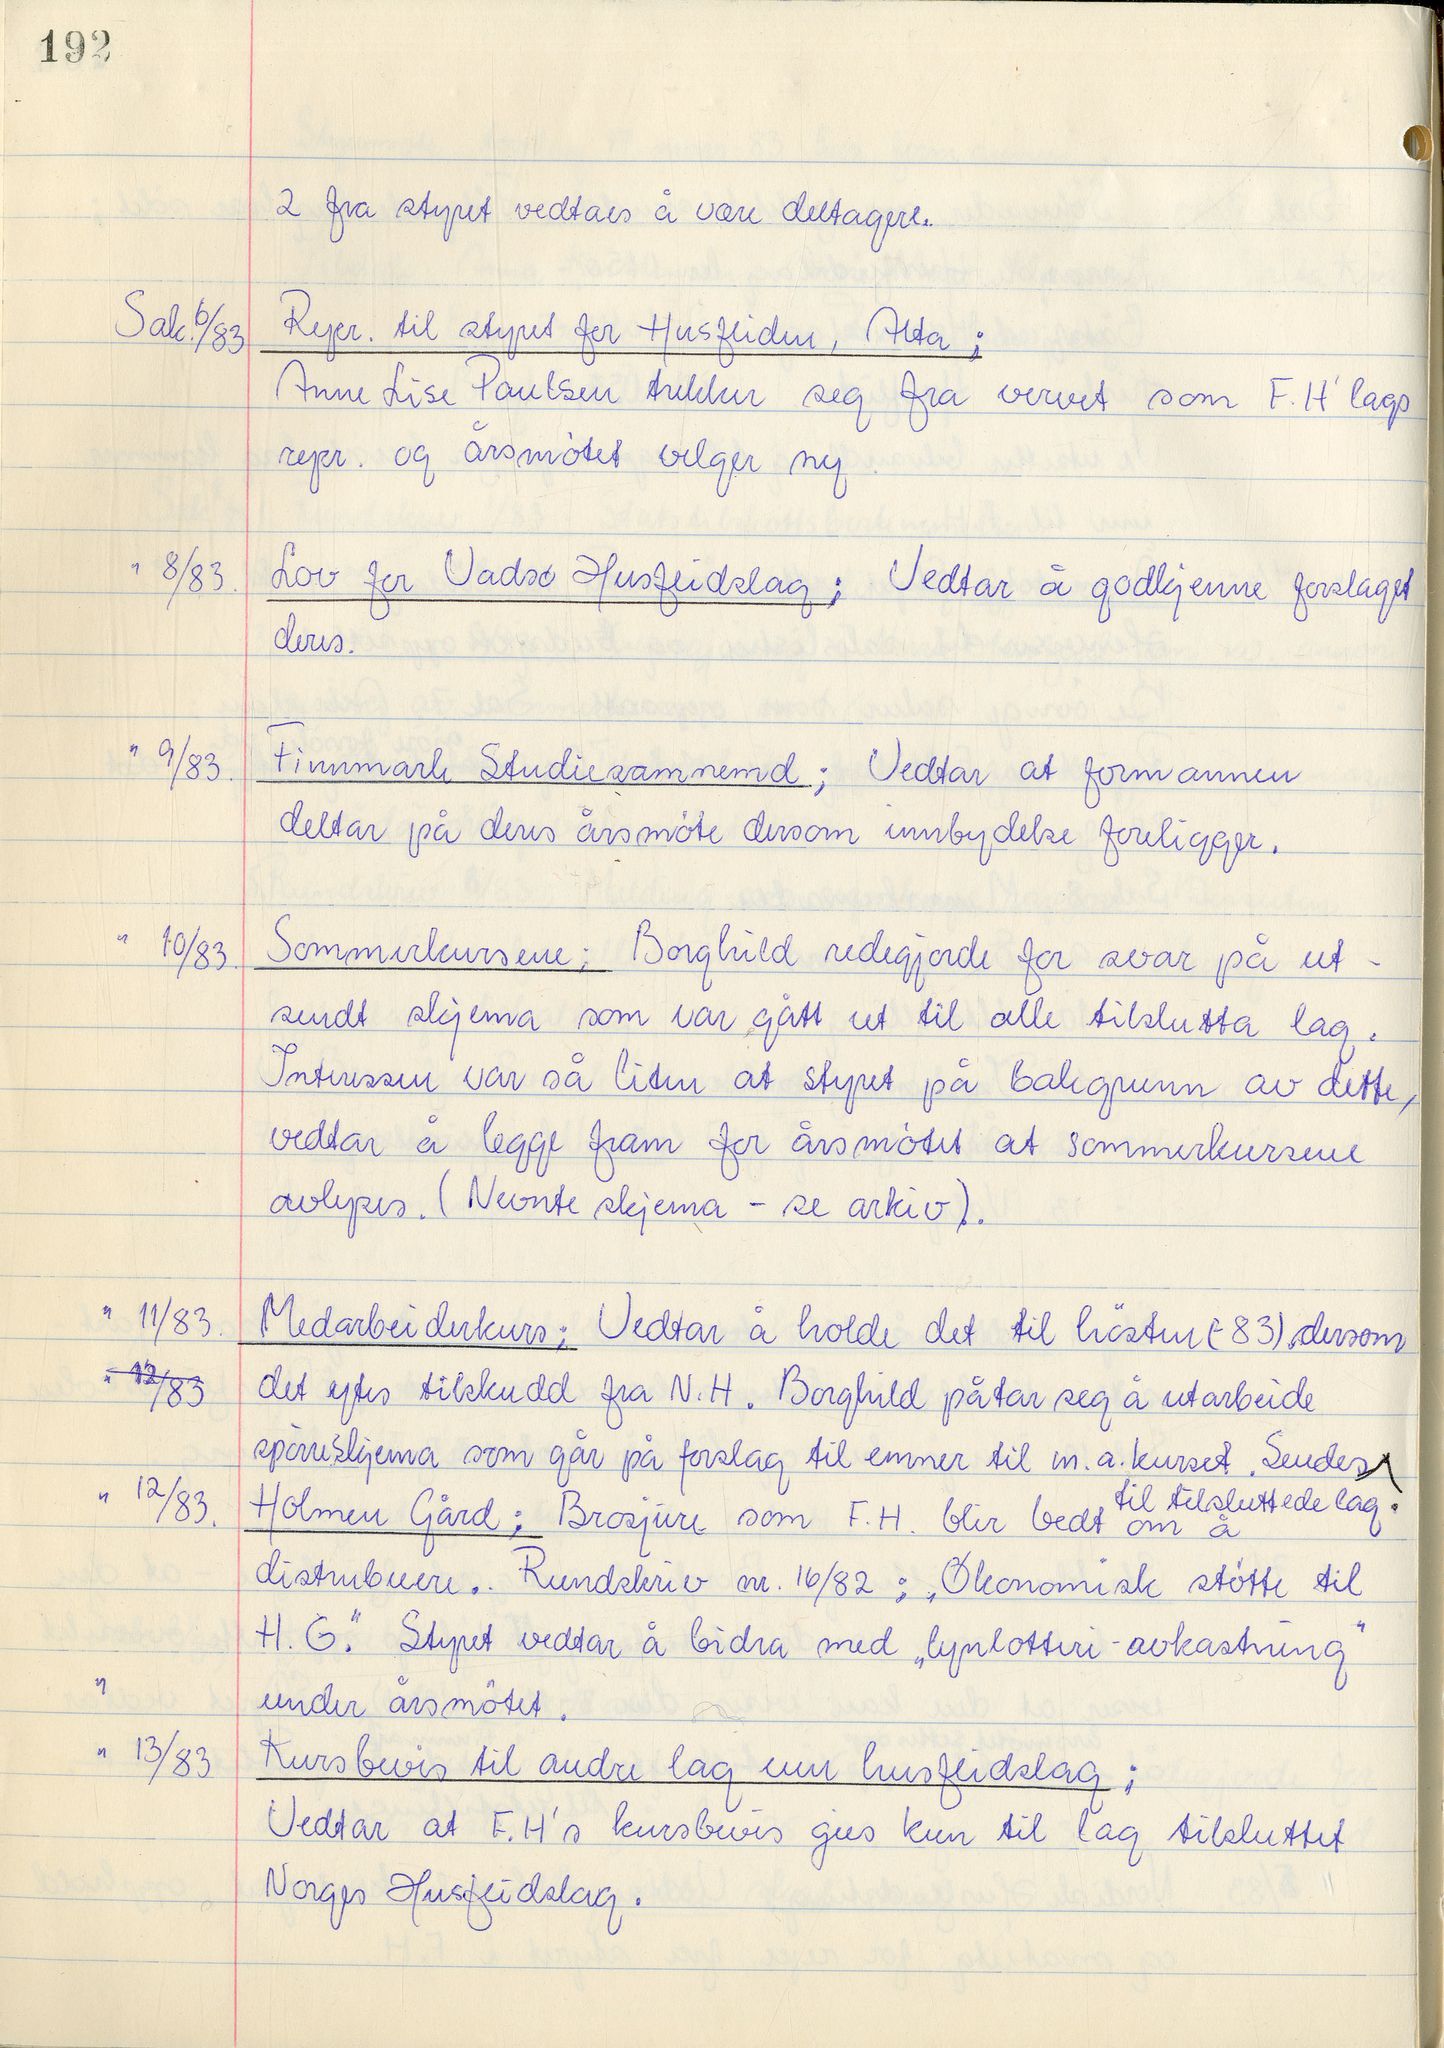 192
2 fra styret vedtaes å være deltagere.
Sak. 6/83 Repr. til styret for Husfliden, Alta;
Anne Lise Paulsen trekker seg fra vervet som F.H' lags
repr. og årsmötet velger ny.
" 8/83. Lov for Vadsö Husflidslag; Vedtar å godkjenne forslaget
deres.
" 9/83. Finnmark Studiesamnemd; Vedtar at formannen
deltar på deres årsmöte dersom innbydelse foreligger.
" 10/83. Sommerkursene; Borghild redegjorde for svar på ut-
sendt skjema som var gått ut til alle tilslutta lag.
Interessen var så liten at styret på bakgrunn av dette,
vedtar å legge fram for årsmötet at sommerkursene
avlyses. (Nevnte skjema - se arkiv).
" 11/83. Medarbeiderkurs; Vedtar å holde det til hösten (-83). dersom
" 12/83 det ytes tilskudd fra N.H. Borghild påtar seg å utarbeide
spörreskjema som går på forslag til emner til m.a. kurset. Sendes
til tilsluttede lag.
" 12/83. Holmen Gård; Brosjyre som F.H. blir bedt om å
distribuere.. Rundskriv nr. 16/82; „Ökonomisk stötte til
H.G." Styret vedtar å bidra med „lynlotteri-avkastning"
" under årsmötet.
" 13/83 Kursbevis til andre lag enn husflidslag;
Vedtar at F.H's kursbevis gies kun til lag tilsluttet
Norges Husflidslag.